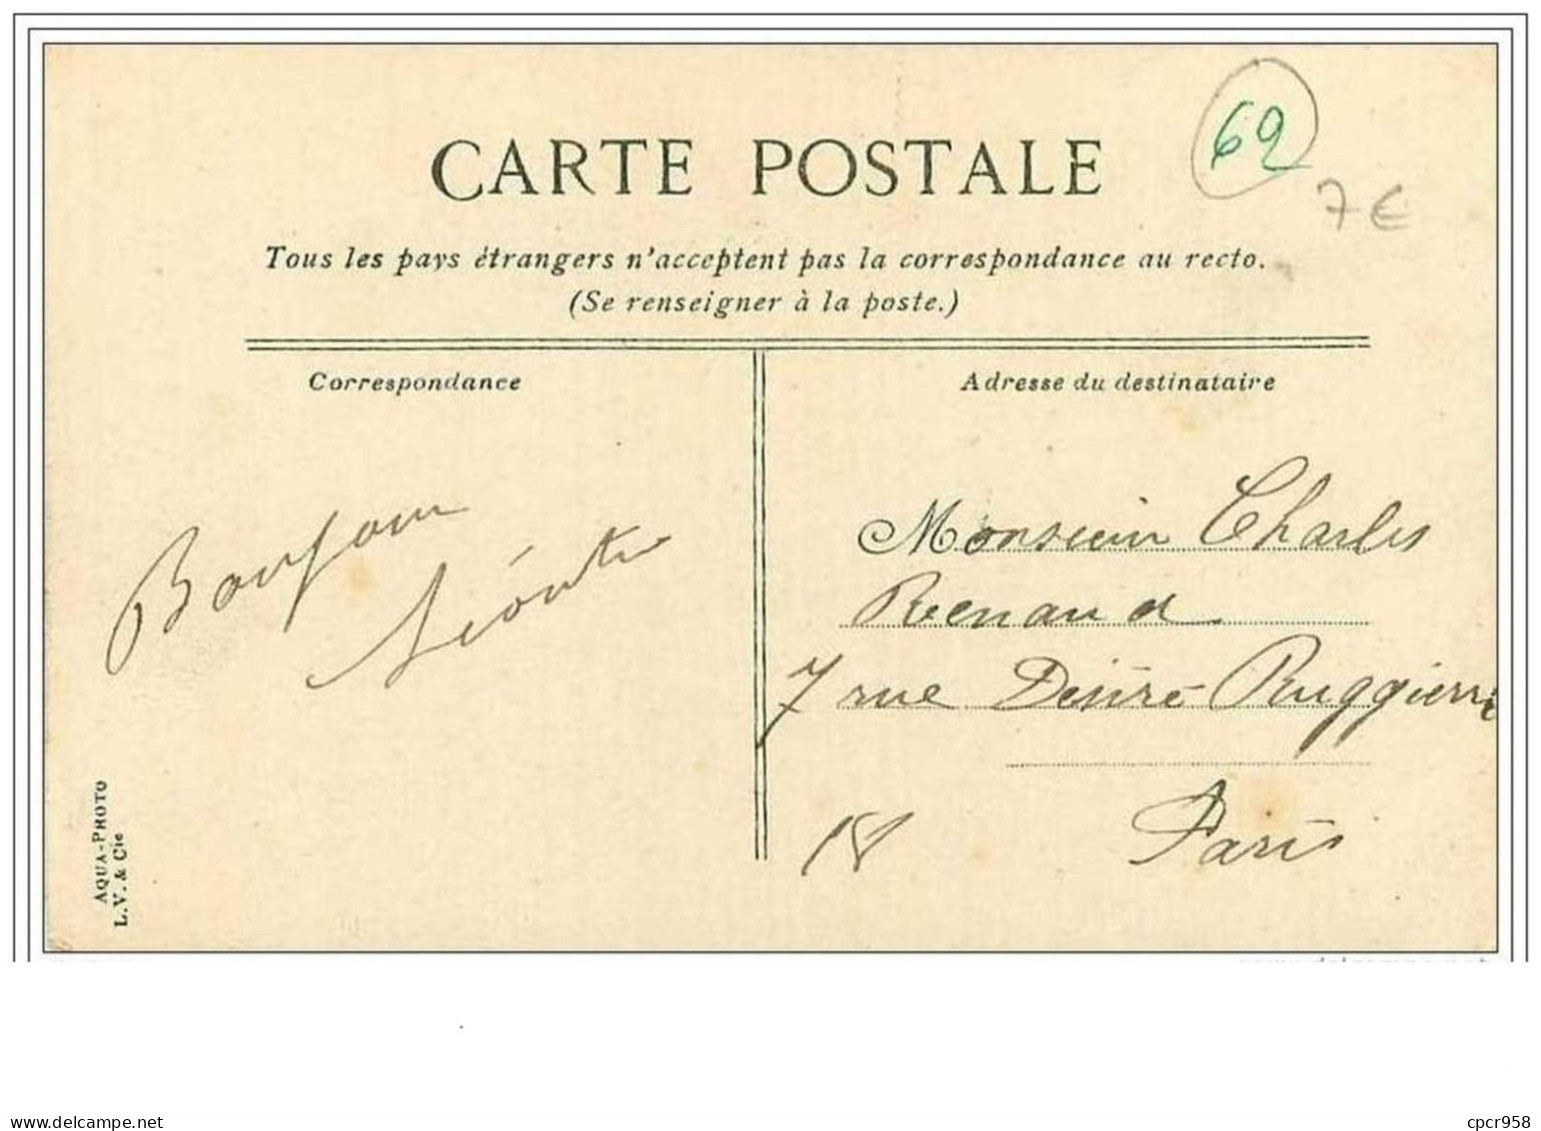 CARTE POSTALE
69
7 €
Tous les pays étrangers n'acceptent pas la correspondance au recto.
(Se renseigner à la poste.)
Correspondance
Adresse du destinataire
Bonjour
Monsieur Charles
Renaud
7 rue Désiré Ruggieri
Paris
18
AQUA-PHOTO
L.V. & Cie
Mamzelledeparis
cpcr958